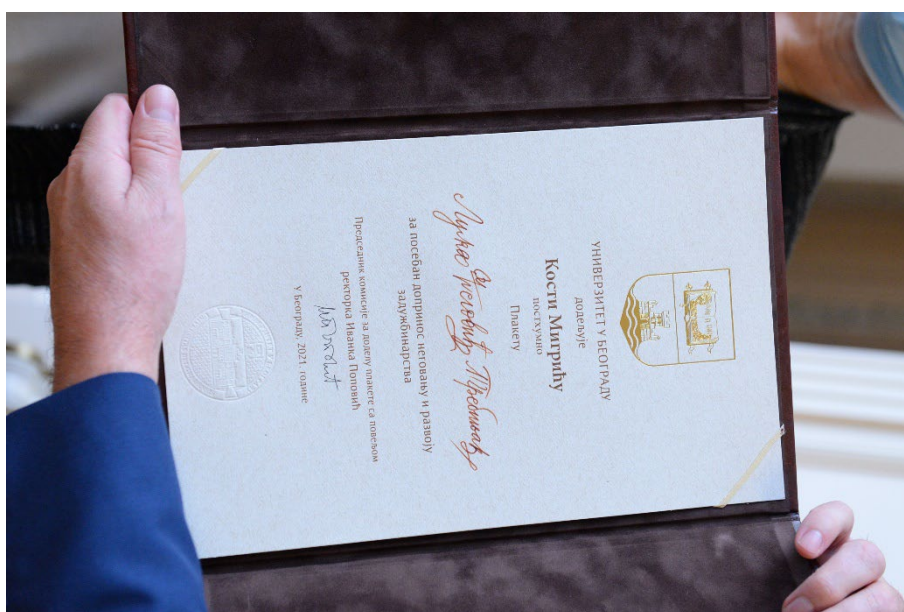 УНИВЕРЗИТЕТ У БЕОГРАДУ
додељује
Кости Мигрићу
постхумно
Плакету
Лука Ћеловић Требињац
за посебан допринос неговању и развоју
задужбинарства
Председник комисије за доделу плакете са повељом
ректорка Иванка Поповић
У Београду, 2021. године